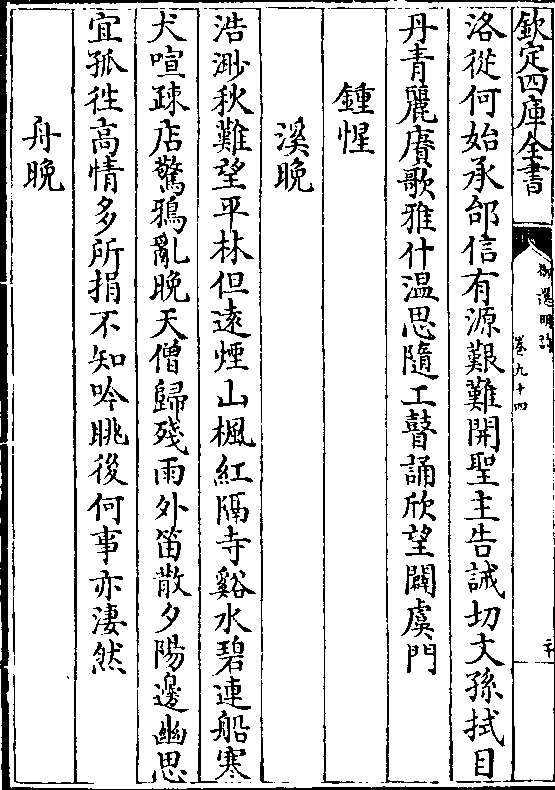 欽定四庫全書
御選明詩
卷九十四
二十
洛從何始承邰信有源艱難開聖主告誡切文孫拭目
丹青麗賡歌雅什温思隨工瞽誦欣望闢虞門
鍾惺
溪晚
浩渺秋難望平林但遠煙山楓紅隔寺谿水碧連船寒
犬喧疎店驚鴉亂晚天僧歸殘雨外笛散夕陽邊幽思
宜孤徃高情多所捐不知吟眺後何事亦凄然
舟晚